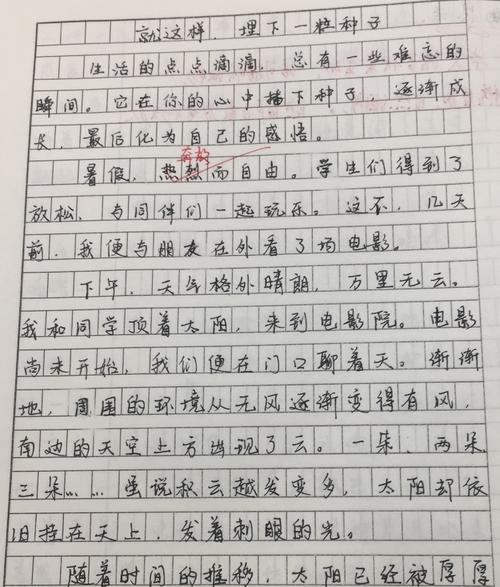 就这样，埋下一粒种子
生活的点点滴滴，总有一些难忘的
瞬间。它在你的心中播下种子，逐渐成
长，最后化为自己的感悟。
奔放
暑假，热烈而自由。学生们得到了
放松，与同伴们一起玩乐。这不，几天
前，我便与朋友在外看了场电影。
下午，天气格外晴朗，万里无云。
我和同学顶着太阳，来到电影院。电影
尚未开始，我们便在门口聊着天。渐渐
地，周围的环境从无风逐渐变得有风，
南边的天空上方出现了云。一朵，两朵
三朵……虽说积云越发变多，太阳却依
旧挂在天上，发着刺眼的光。
随着时间的推移，太阳已经被厚厚